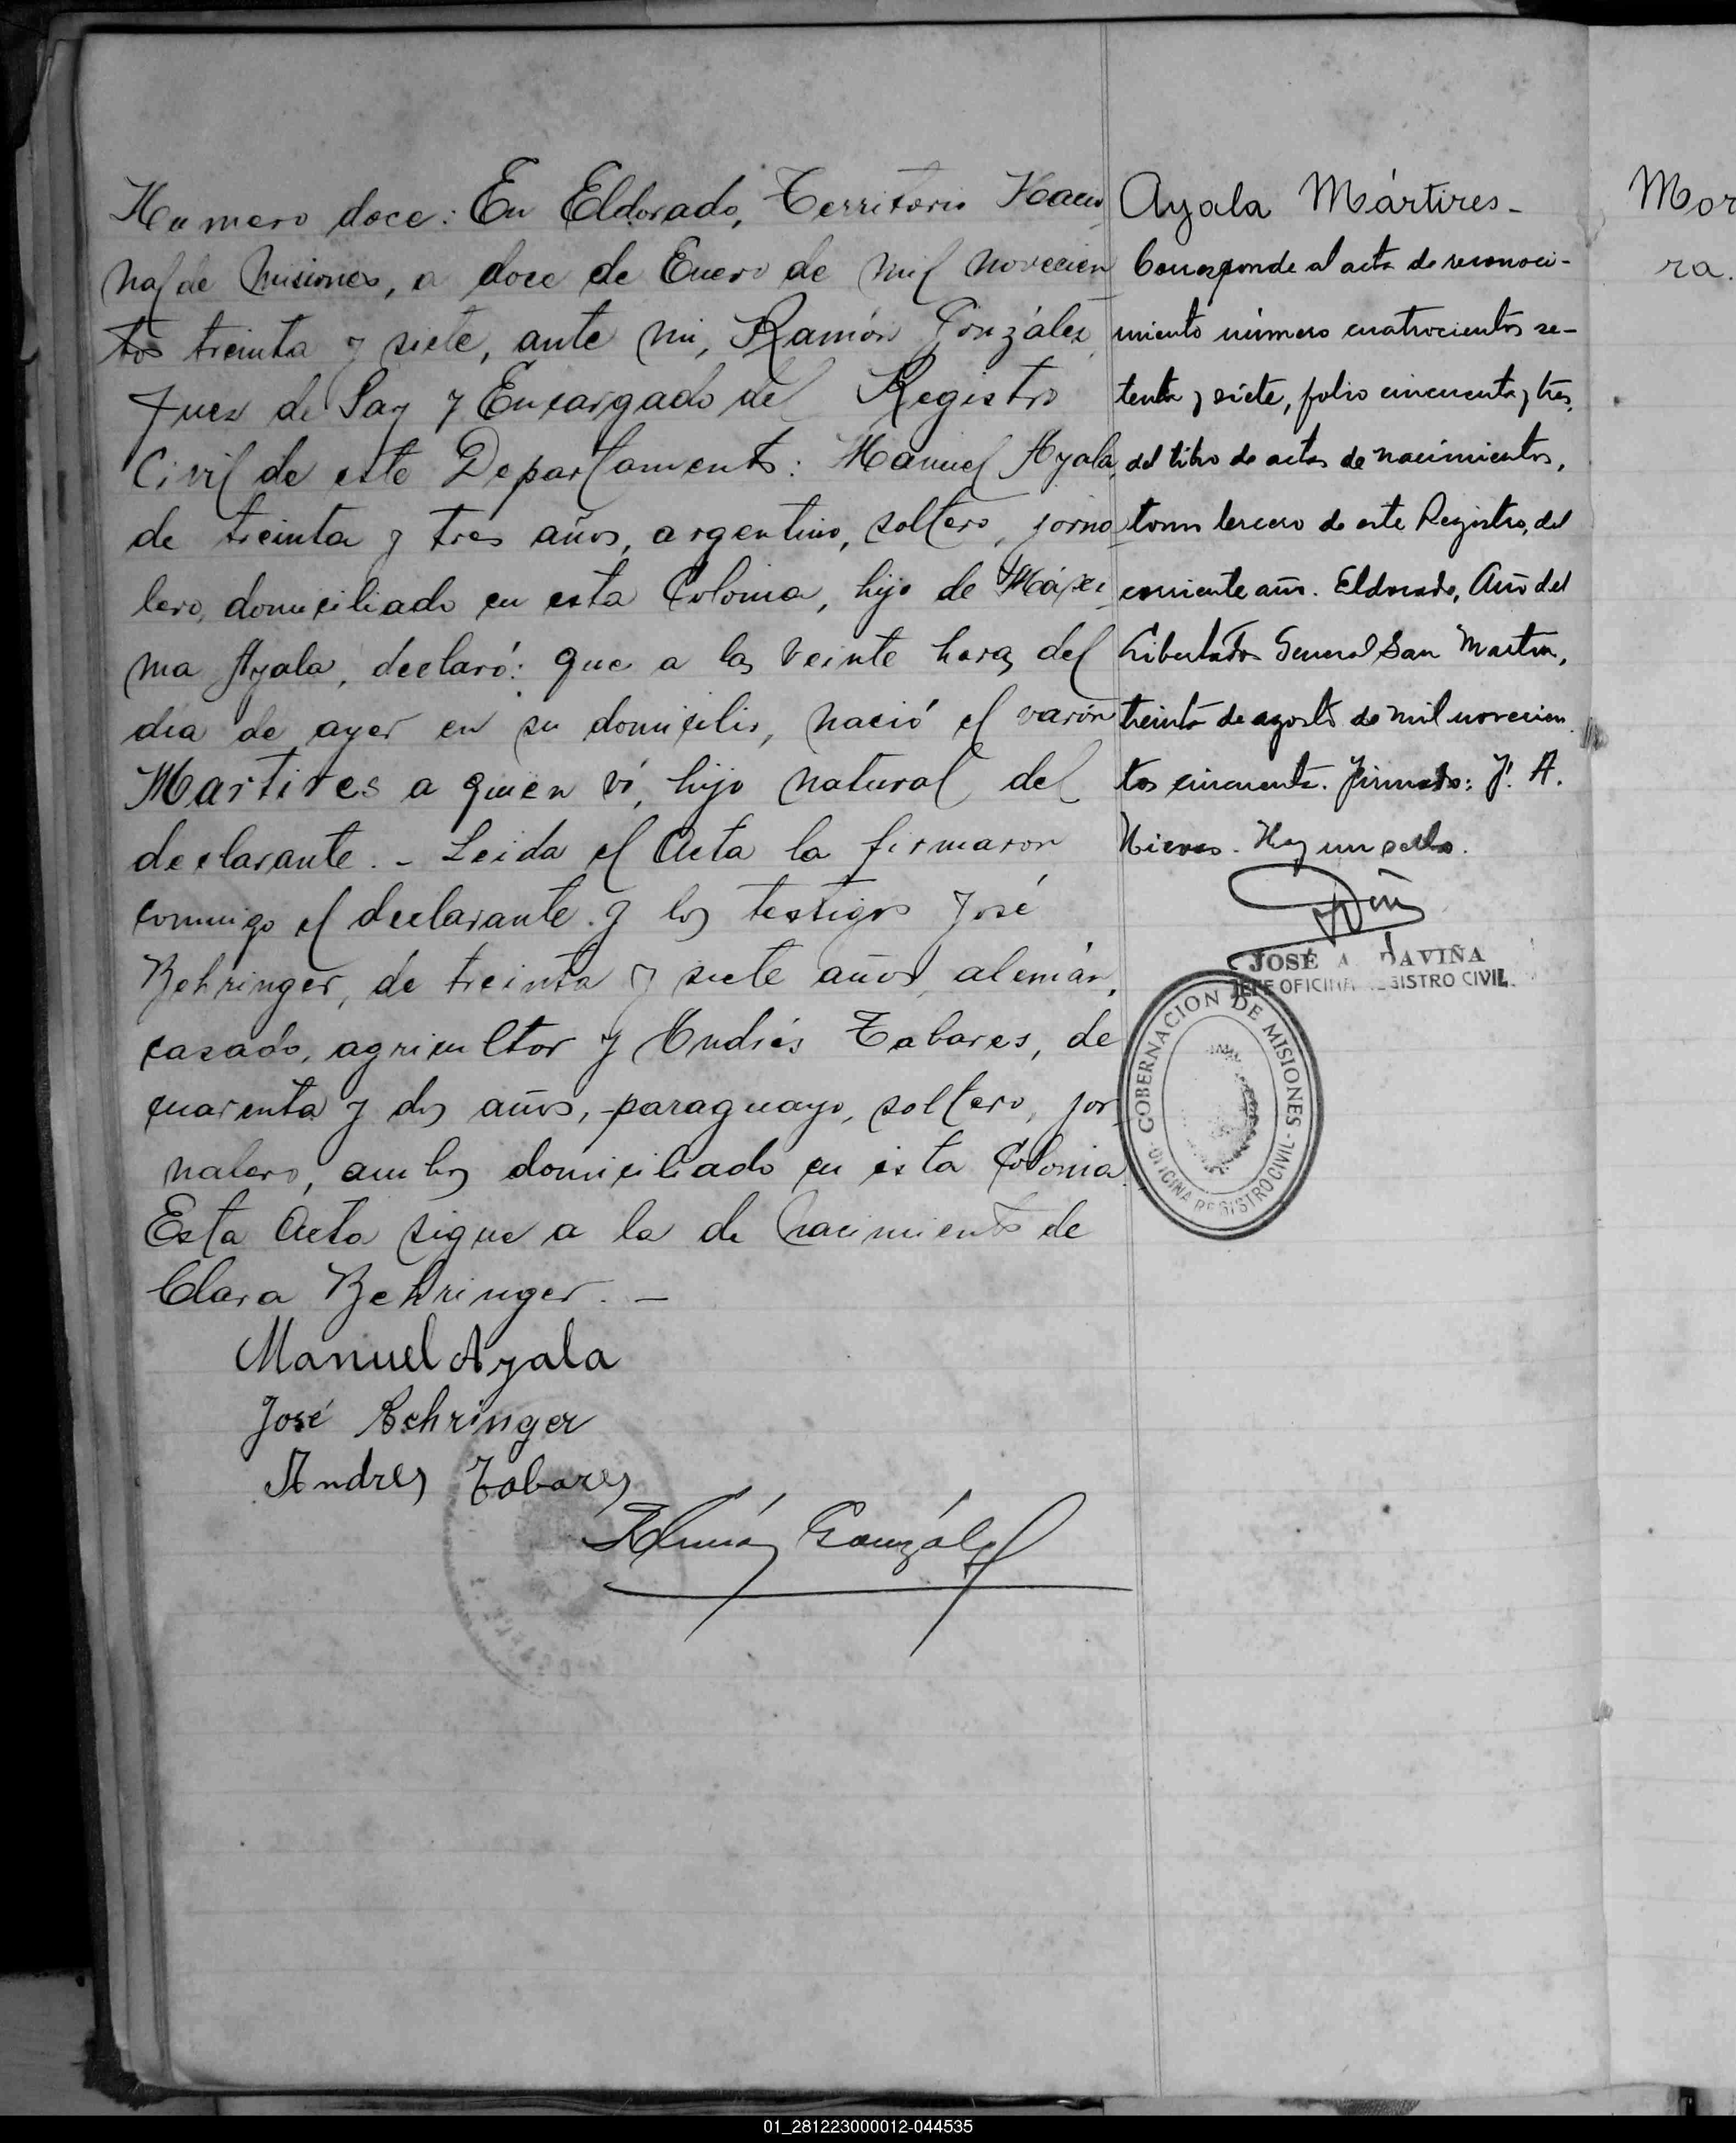 Numero doce: En Eldorado, Territorio Nacio
nal de Misiones, a doce de Enero de mil novecien
tos treinta y siete, ante mi, Ramón González,
Juez de Paz y Encargado del Registro
Civil de este Departamento: Manuel Ayala,
de treinta y tres años, argentino, soltero, jorna
lero, domiciliado en esta Colonia, hijo de Máxi
ma Ayala, declaró: que a las veinte horas del
día de ayer en su domicilio, nació el varón
Martires a quien ví, hijo natural del
declarante. - Leida el Acta la firmaron
conmigo el declarante y los testigos José
Behringer, de treinta y siete años, alemán,
casado, agricultor y Andrés Tabares, de
cuarenta y dos años, paraguayo, soltero, jor
nalero, ambos domiciliado en esta Colonia.
Esta Acta sigue a la de Nacimiento de
Clara Behringer. -
Manuel Ayala
José Behringer
Andres Tabares
Ramón González
Ayala Mártires -
Corresponde al acta de reconoci-
miento número cuatrocientos se-
tenta y siete, folio cincuenta y tres,
del libro de actas de nacimientos,
tomo tercero de este Registro, del
corriente año. Eldorado, Año del
Libertador General San Martín,
treinta de agosto de mil novecien
tos cincuenta. Firmado: J. A.
Nieves. Hay un sello.
JOSÉ A. DAVIÑA
JEFE OFICINA REGISTRO CIVIL
GOBERNACION DE MISIONES
OFICINA REGISTRO CIVIL
Mor
ra.
01_281223000012-044535